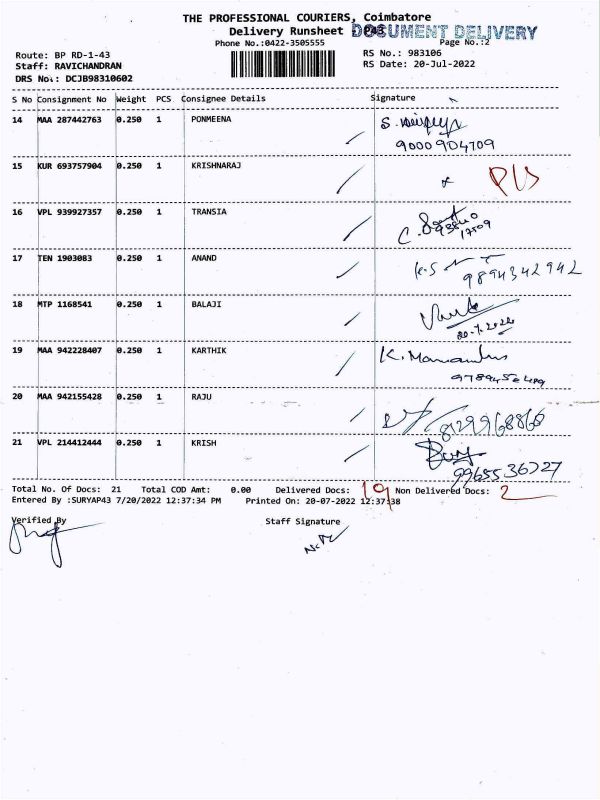 THE PROFESSIONAL COURIERS, Coimbatore
Delivery Runsheet DOCUMENT DELIVERY
Phone No.:0422-3505555 Page No.:2
Route: BP RD-1-43 RS No.: 983106
Staff: RAVICHANDRAN RS Date: 20-Jul-2022
DRS No.: DCJB98310602
S No Consignment No Weight PCS Consignee Details Signature
14 MAA 287442763 0.250 1 PONMEENA
9000904709
15 KUR 693757904 0.250 1 KRISHNARAJ
16 VPL 939927357 0.250 1 TRANSIA
17 TEN 1903083 0.250 1 ANAND K.S
9894342942
18 MTP 1168541 0.250 1 BALAJI
20.7.2022
19 MAA 942228407 0.250 1 KARTHIK K.
20 MAA 942155428 0.250 1 RAJU
8129968866
21 VPL 214412444 0.250 1 KRISH
9965536727
Total No. Of Docs: 21 Total COD Amt: 0.00 Delivered Docs: 19 Non Delivered Docs: 2
Entered By :SURYAP43 7/20/2022 12:37:34 PM Printed On: 20-07-2022 12:37:38
Verified By Staff Signature